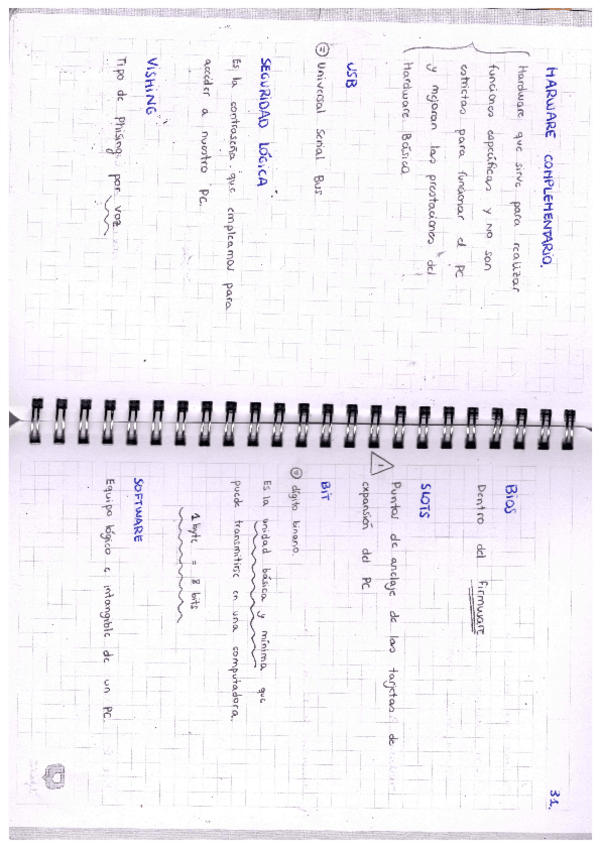 HARWARE COMPLEMENTARIO.
Hardware que sirve para realizar
funciones específicas y no son
estrictas para funcionar el PC
y mejoran las prestaciones del
Hardware Básico
USB
= Universal Serial Bus
SEGURIDAD LÓGICA
Es la contraseña que empleamos para
acceder a nuestro PC.
VISHING
Tipo de Phising por voz
31.
BIOS
Dentro del firmware
SLOTS
! Puntos de anclaje de las tarjetas de
expansión del PC
BIT
= dígito binario.
Es la unidad básica y mínima que
puede transmitirse en una computadora.
1 byte = 8 bits
SOFTWARE
Equipo lógico e intangible de un PC.